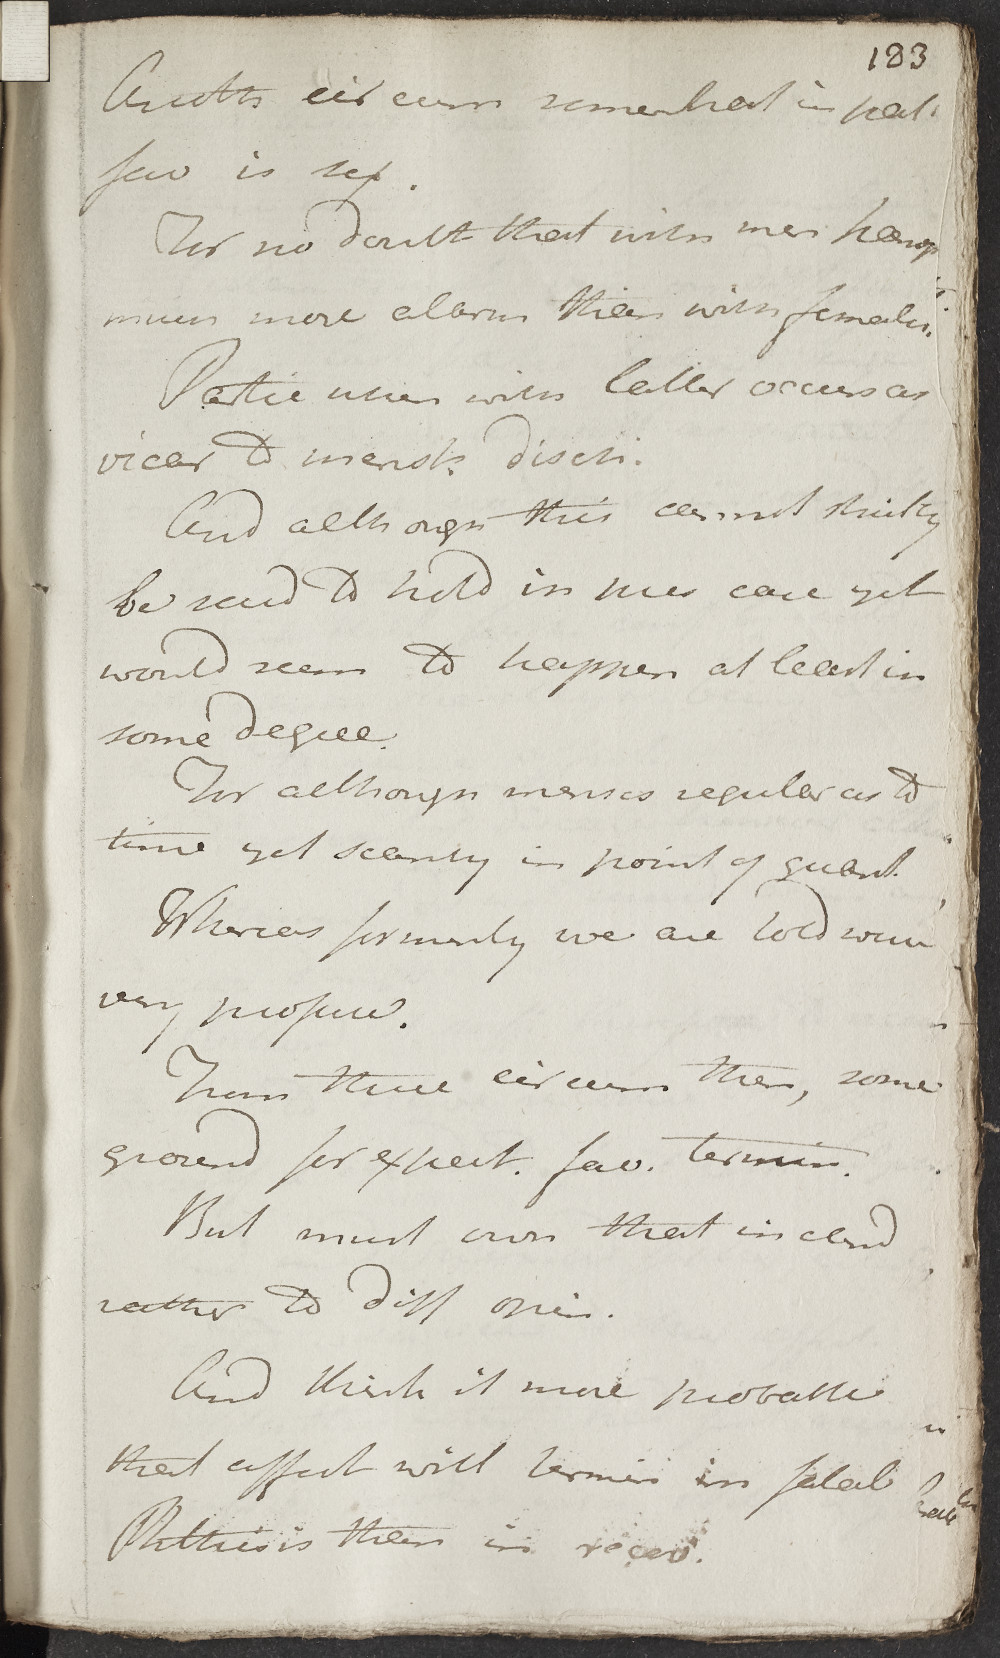 183
Anoth circum somewhat in pat
fav is sex.
For no doubt that with men hæmop
much more alarm than with females.
Partic when with latter occurs as
vicar to menst. disch.
And although this cannot strictly
be said to hold in pres case yet
would seem to happen at least in
some degree.
For although menses regular as to
time yet scanty in point of quant.
Whereas formerly we are told were
very profuse.
From these circum then, some
ground for expect. fav. termin.
But must own that inclend
rather to diff opin.
And think it more probable
that affect will termin in fatal
Phthisis than in recov.